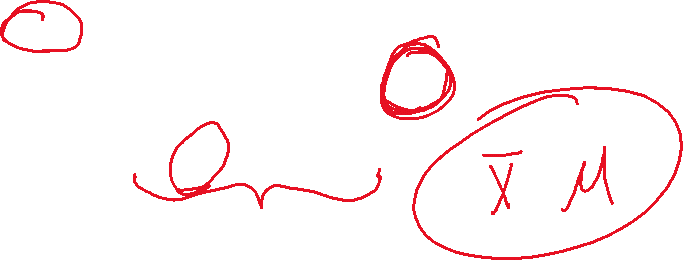 X̄ μ